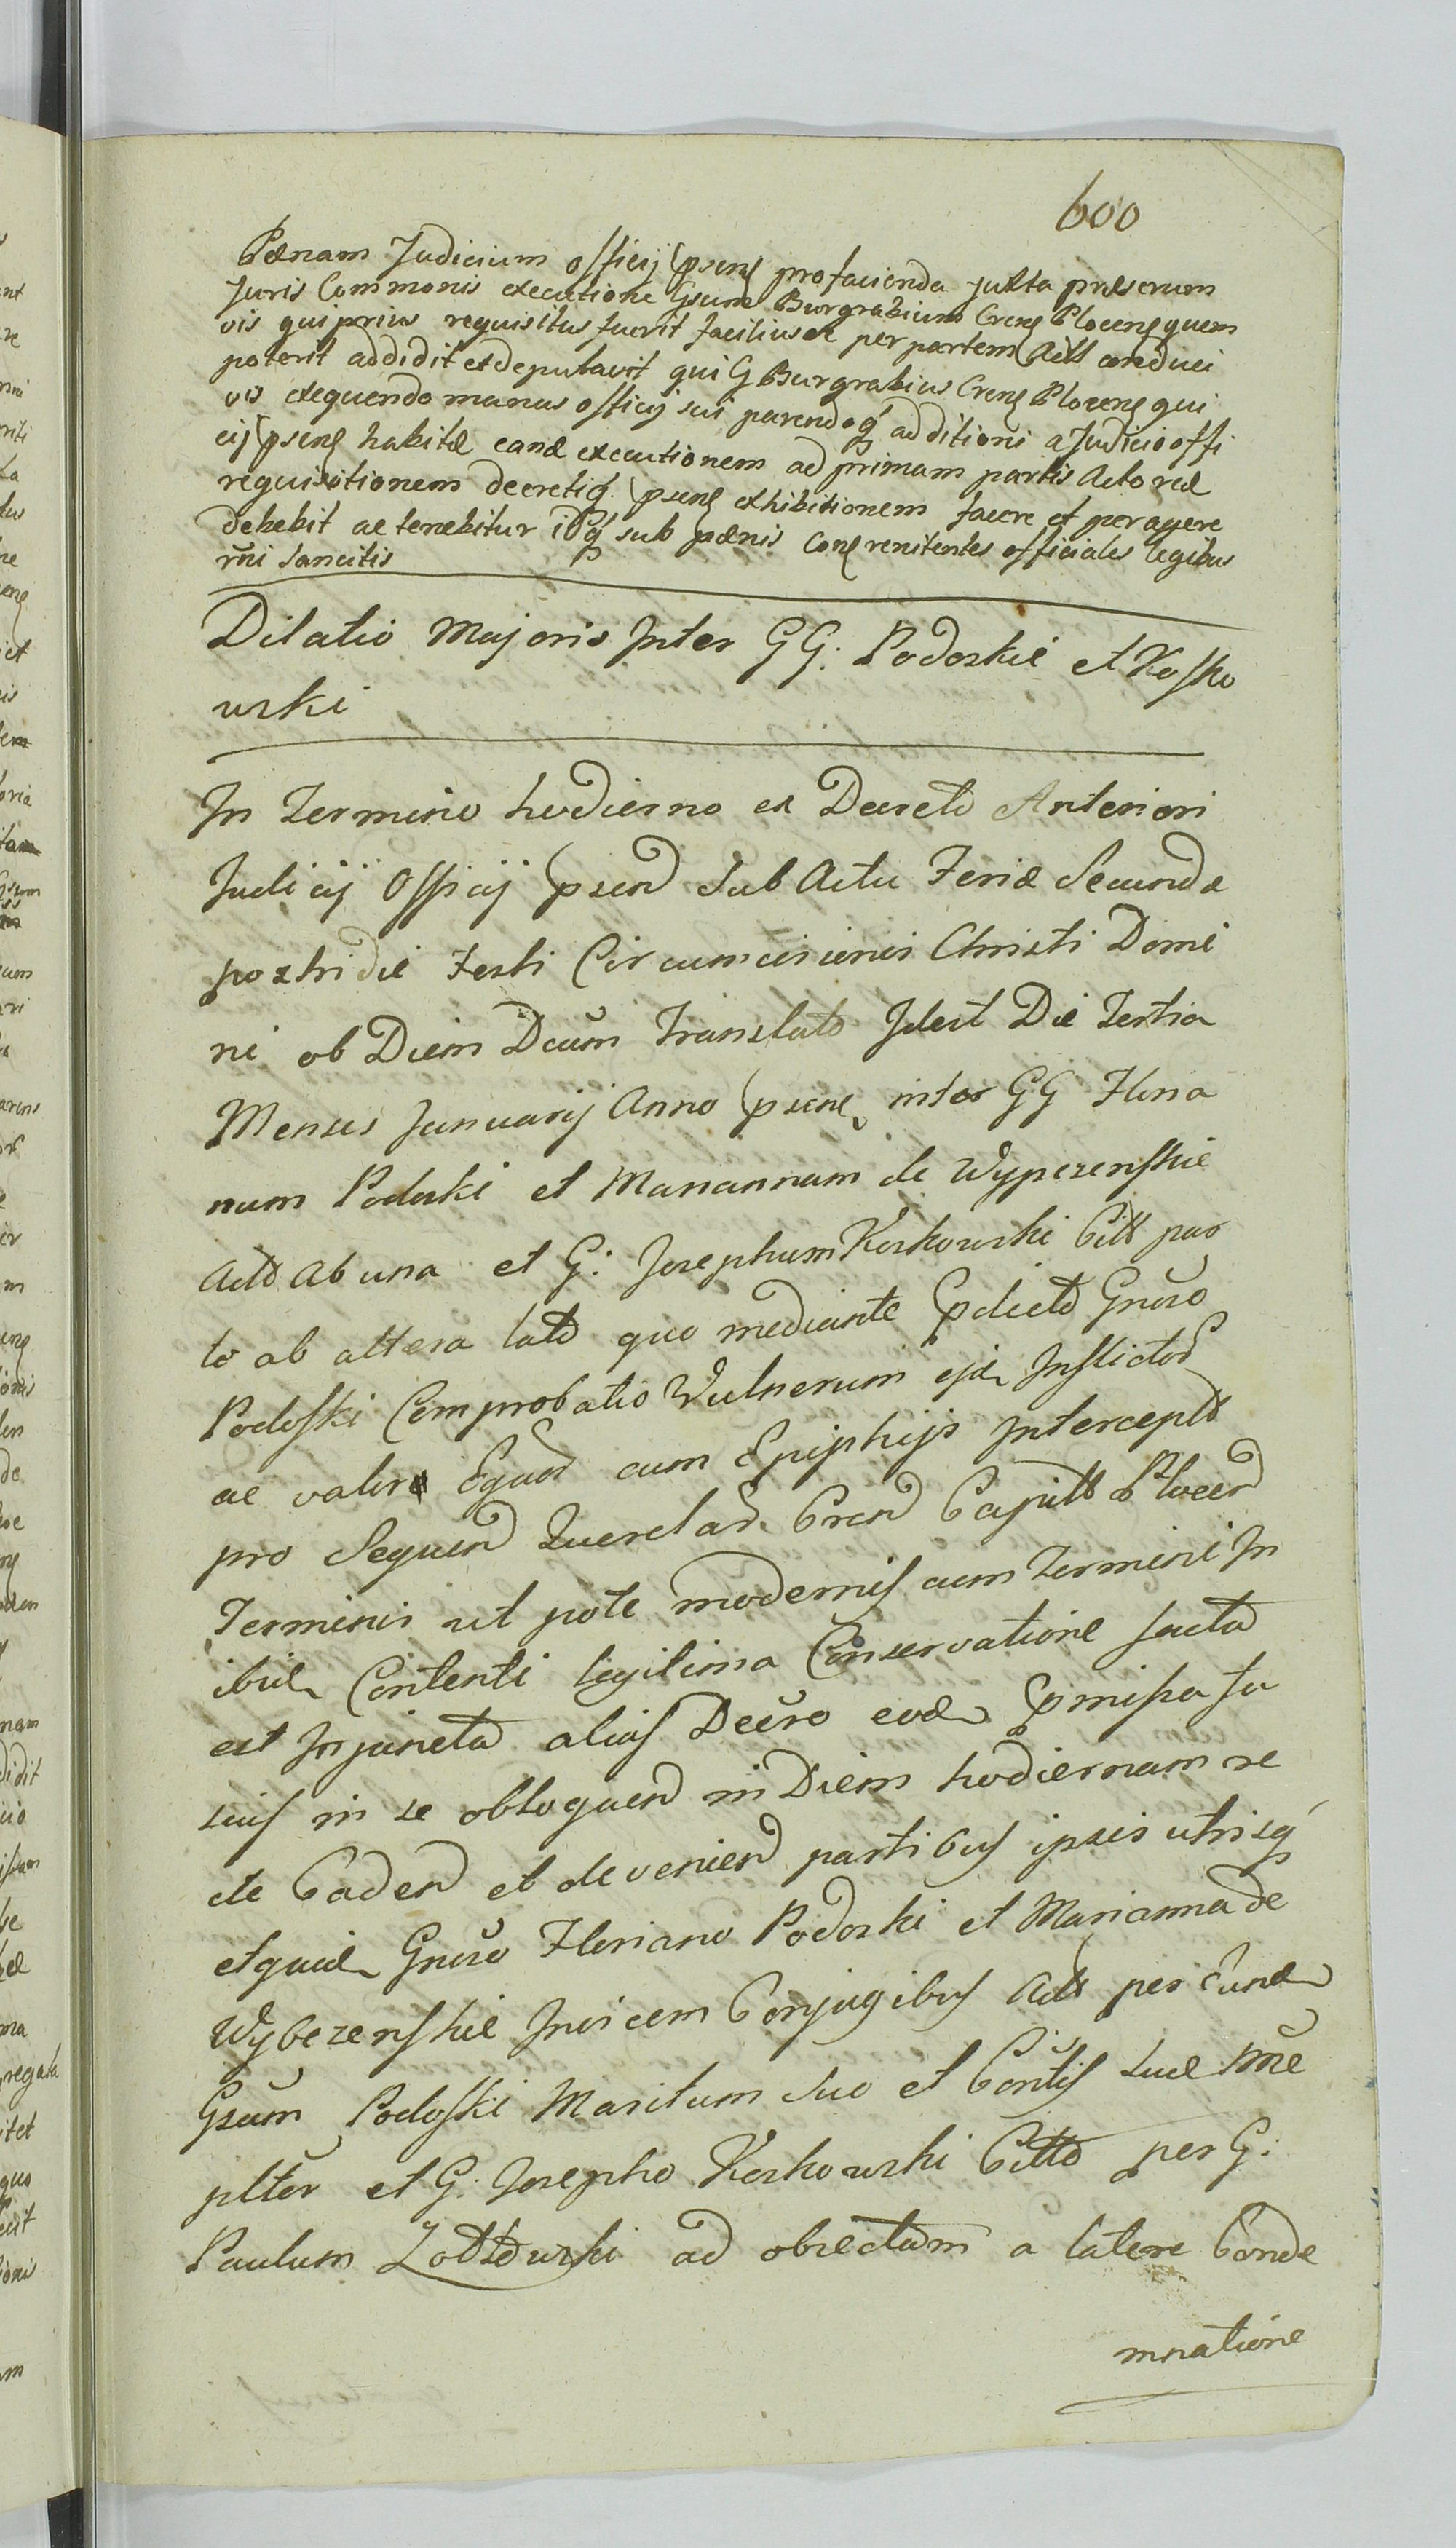 600
Pænam Judicium officij psens pro facienda juxta præscrum
Juris Communis executione Gsum Burgrabium Crens Plocens quem
vis qui prius requisitus fuerit facilius et per partem Actt conduci
poterit addidit et deputavit qui G Burgrabius Crens Plocens qui
vis exequendo manus officij sui parendoq additioni a Judicio offi
cij psens habitæ eand executionem ad primam partis Actoreæ
requisitionem decretiq psens exhibitionem facere et peragere
debebit ac tenebitur idq sub pænis cons renitentes officiales legibus
rni sancitis
Dilatio Majoris Inter GG: Podoskie et Kosko
wski
In Termino hodierno ex Decreto Anteriori
Judicij Officij psend Sub Actu Feriæ Secundæ
postridie Festi Circumcisionis Christi Domi
ni ob Diem Dcum Translato Idest Die Tertia
Mensis Januarij Anno psene inter GG Floria
num Podoski et Mariannam de Wypczenskie
Actt Ab una et G: Josephum Koskowski Citt par
te ab altera lato quo mediante pdicto Gnoso
Podoski Comprobatio Vulnerum ejd Inflictor
ac valore Equor cum Ephippijs Intercept
pro Sequend Querelar Crend Capitt Plocen
Terminis ut pote modernis cum Termini In
ibid Contenti legitima Conservatione facta
est Injuncta alias Decro eod pmissa fu
sius in se obloquend in Diem hodiernam re
cte Caden et devenien partibus ipsis utrisq
et quid Gnoso Floriano Podoski et Marianna de
Wybczenskie Invicem Conjugibus Actt per eund
Gsum Podoski Maritum suo et Contis suæ nme
plter et G. Josepho Koskowski Citto per G:
Paulum Zołtowski ad obiectam a latere Conde
mnatione